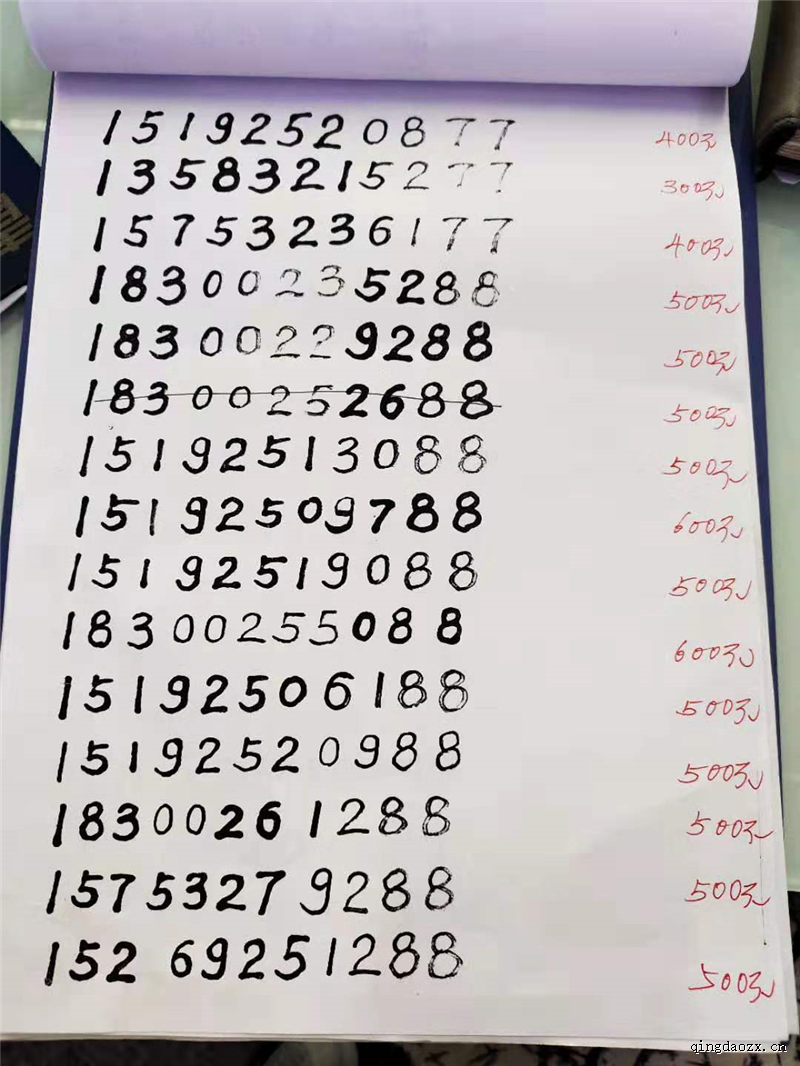 15192520877 400元
13583215277 300元
15753236177 400元
18300235288 500元
18300229288 500元
18300252688 500元
15192513088 500元
15192509788 600元
15192519088 500元
18300255088 600元
15192506188 500元
15192520988 500元
18300261288 500元
15753279288 500元
15269251288 500元
qingdaozx.cn